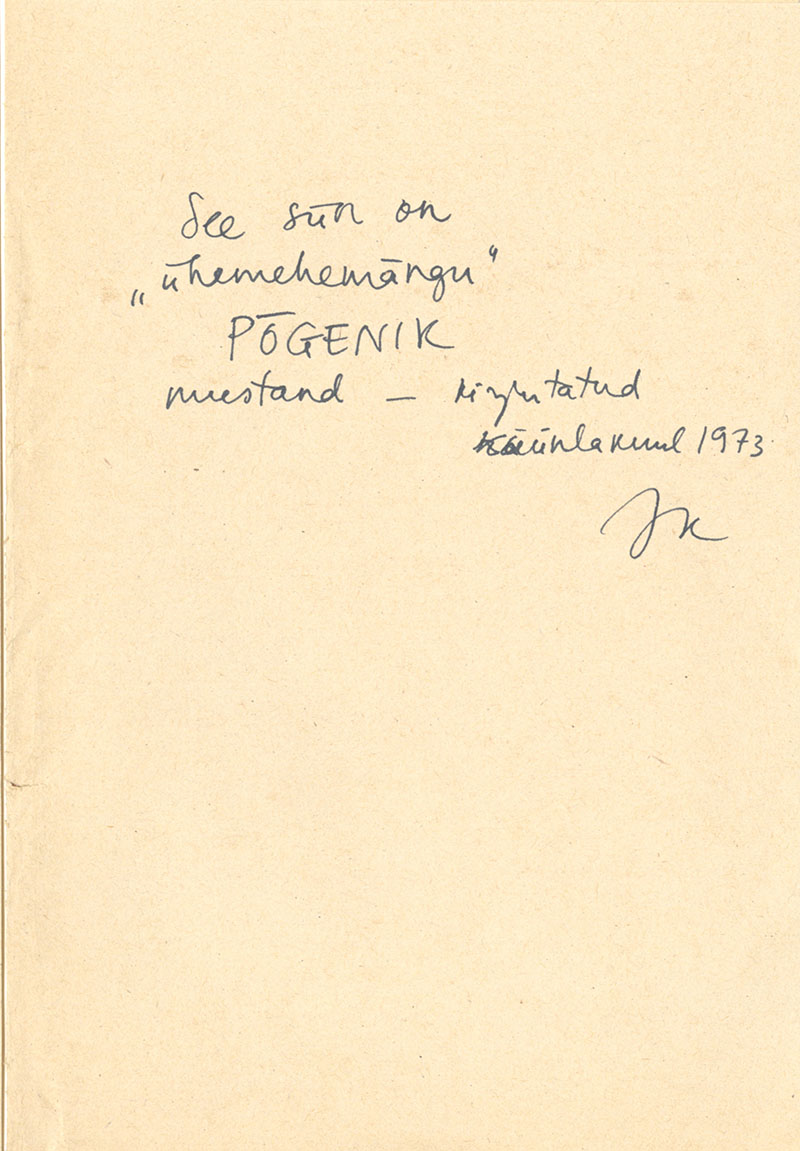 See siin on
„ühemehemängu"
PÕGENIK
mustand – kirjutatud
küünlakuul 1973.
JK